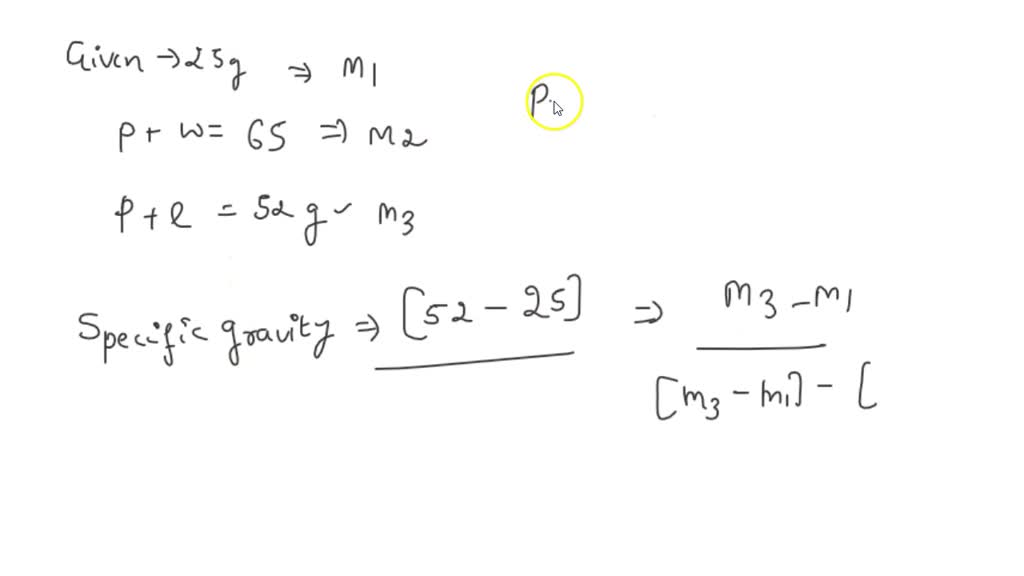 Given → 25g ⇒ m1
P.
P + w = 65 ⇒ m2
P + l = 52 g ~ m3
Specific gravity ⇒ [52 - 25] ⇒ m3 - m1
[m3 - m1] - [